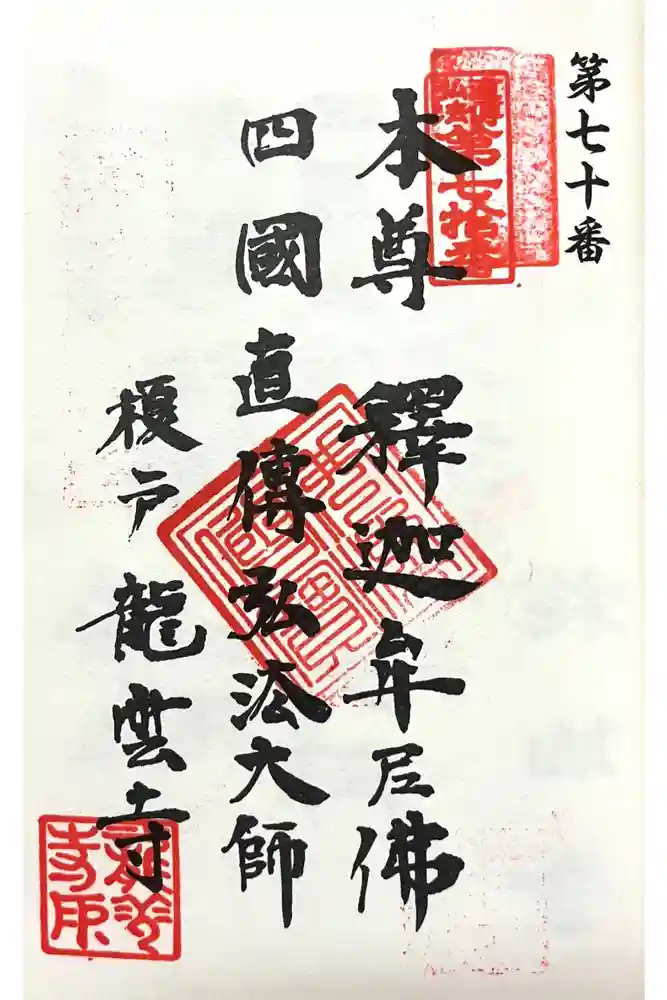 第七十番
第七拾番
本尊 釋迦牟尼佛
四國直傳弘法大師
榎戸 龍雲寺